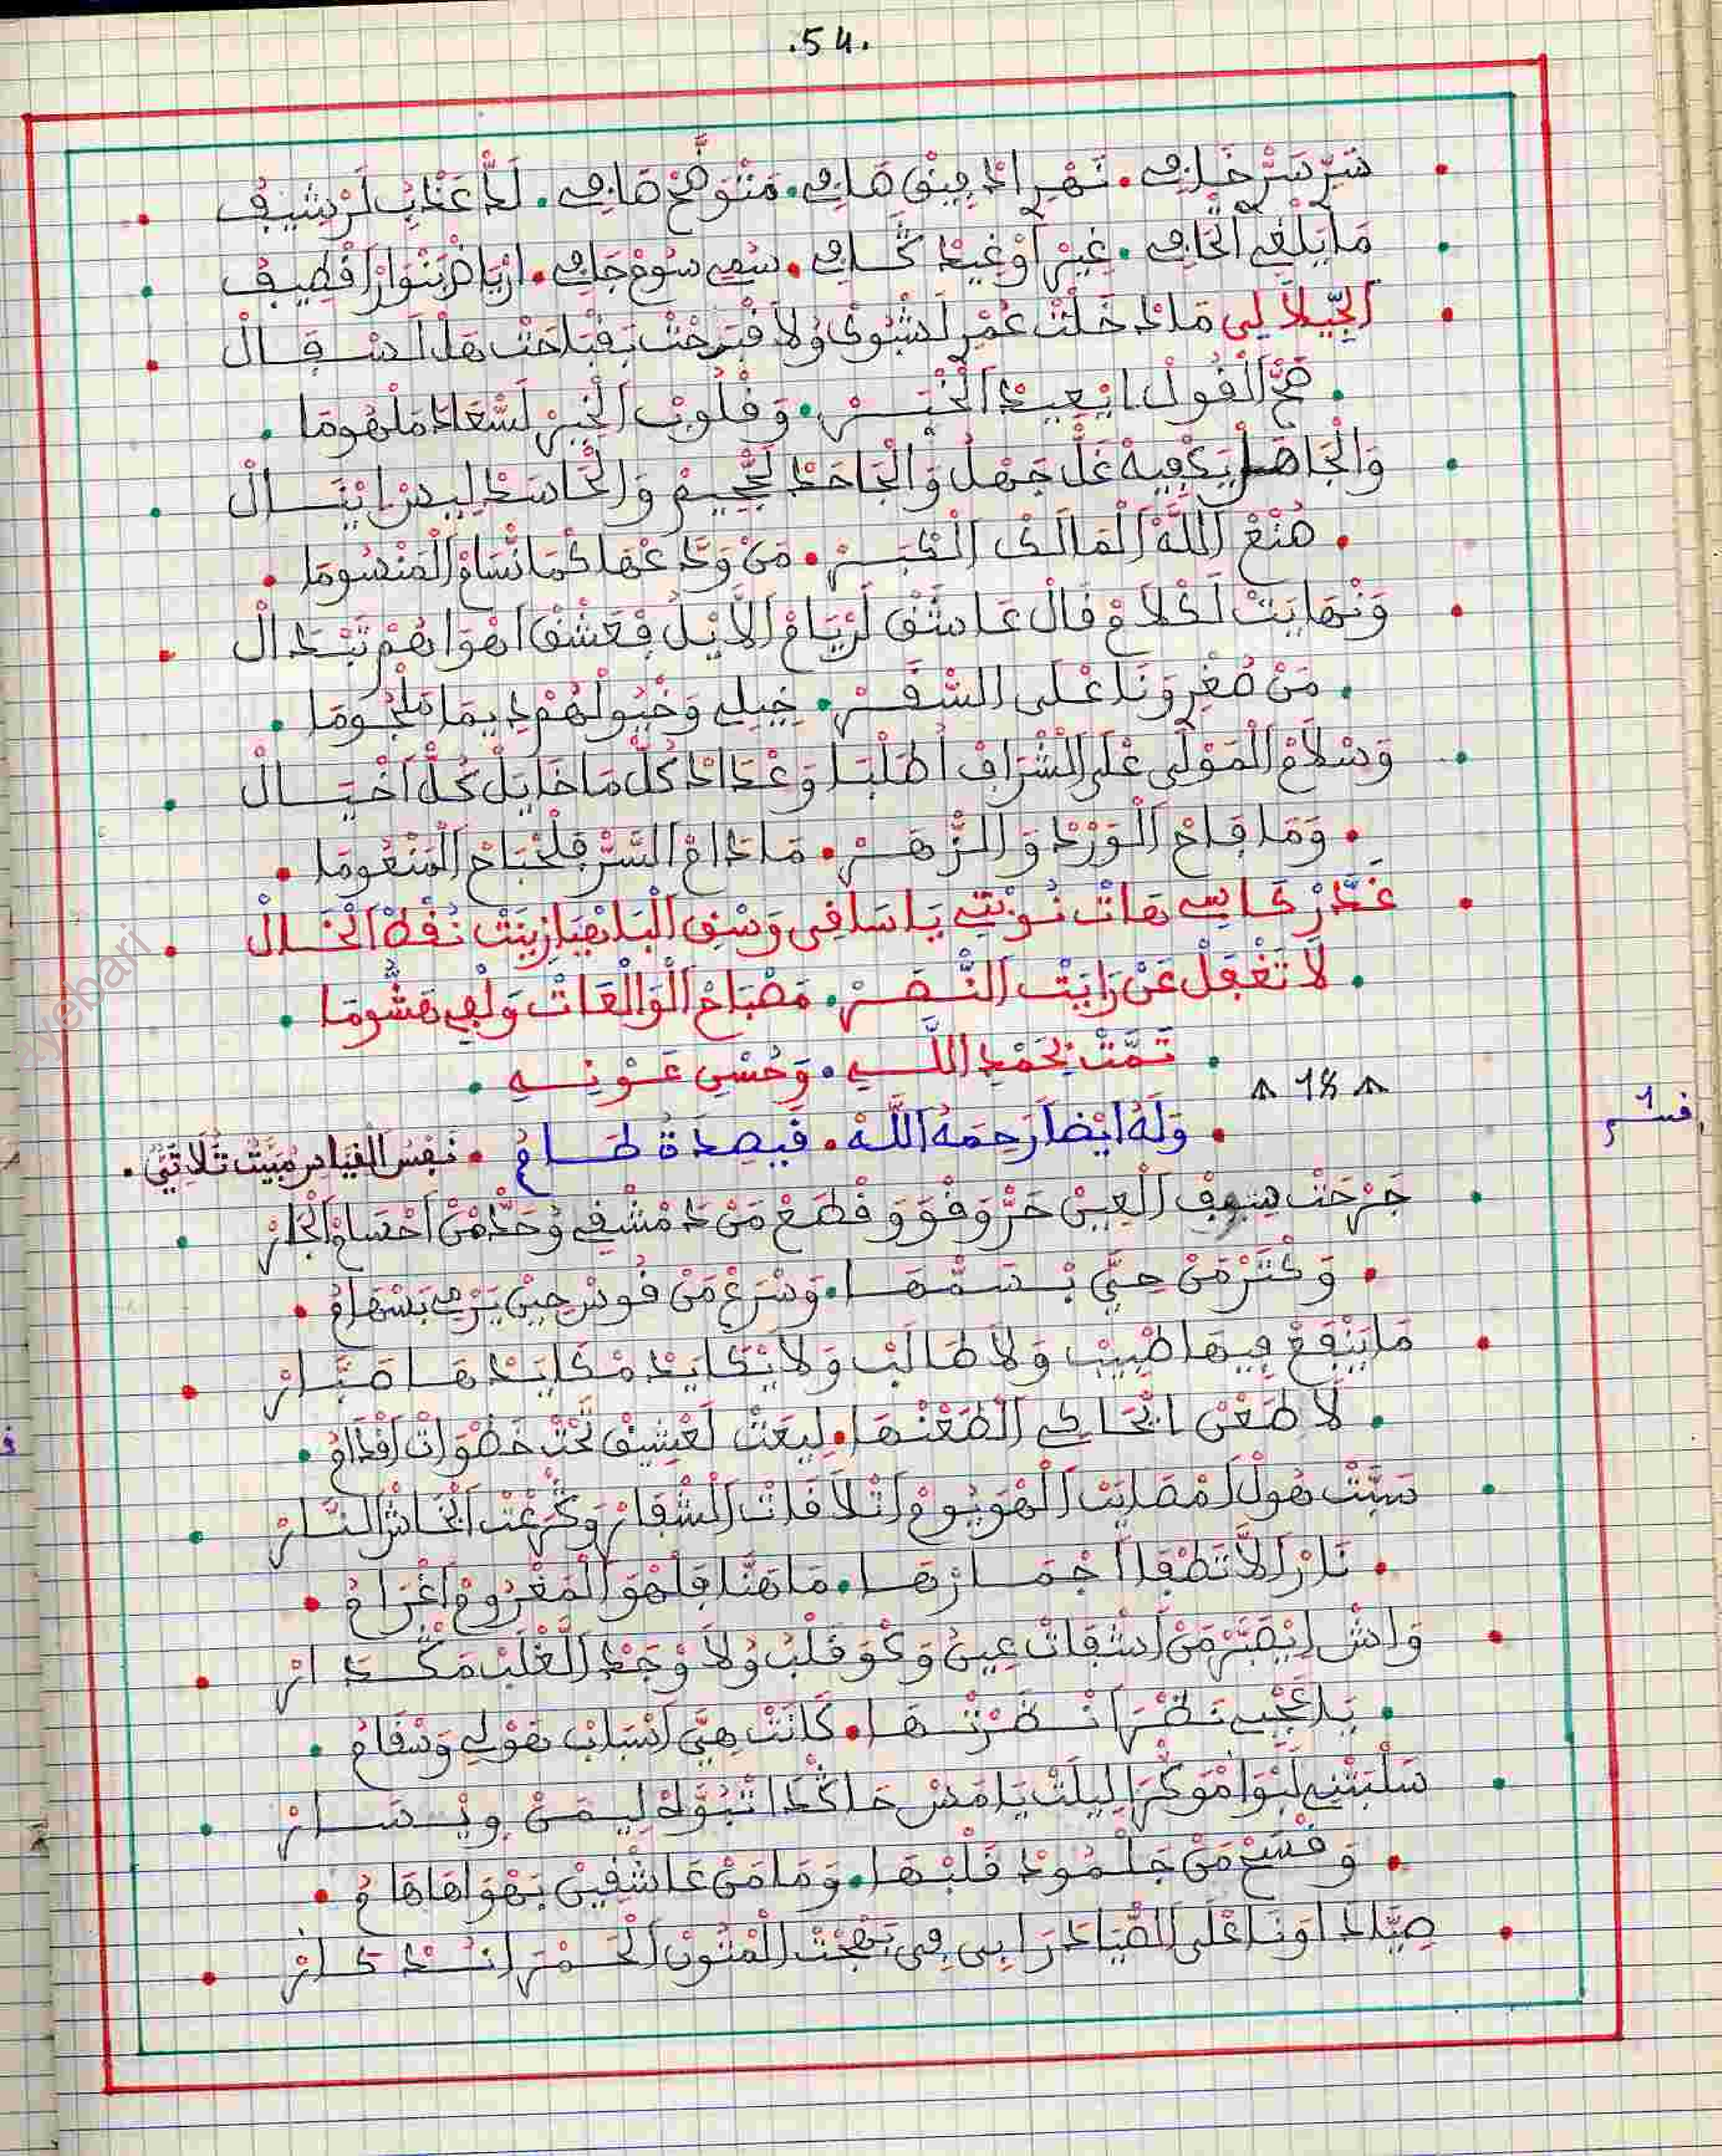 .54.
سَرّ سَرّ خَافِي. نَهْر الدْفِيقْ صَافِي. مَتْوَضَّحْ صَافِي. لَدّ عَذْبْ لَرْشِيفْ
مَا يَلْغِي الْحَافِي. غِيرْ أوْغِيدْ كَافِي. سُمِي سُومْ جَافِي. ارْيَاضْ بَنْوَارْ اقْطِيفْ
الْجِيلَالِي مَادْخَلْتْ عُمْرِ لَشْبُوقْ وُلَا فْبَرْحْتْ بَقْبَاحَتْ هَلْ اَسْقَالْ
. صَحّ الْقُولْ ايْعِيدْ الْخْبَرْ. وَقْلُوبْ الْخِيرْ لَسْعَادْ مَلْهُومَا .
وَالْجَاهَلْ يَكْفِيهْ غَلّ جَهْلُ وَالْجَاحَدْ لَجْحِيمْ وَالْحَاسَدْ لِيسْ ايْنَالْ
. صُنْعْ اللَّهْ الْمَالَكْ الْكْبَرْ. مَنْ وَدّعْهَا كْمَا نْسَامْ الْمَنْسُومَا .
وَنْهَايَتْ لَكْلَامْ قَالْ عَاشَقْ لَرْيَامْ الَا يْلُ فْعَشْقْ اهْوَاهُمْ تَبْدَالْ
. مَنْ صُغْرِ وَنَا عْلَى السّْفَرْ. خِيلِي وَخْيُولْهُمْ دِيمَا مَلْجُومَا .
وَسْلَامْ الْمَوْلَى عْلَى الشّْرَافْ اُطَلْبَا وَعْدَادْ كُلّ مَا خَايَلْ كُلّ اَخْيَالْ
. وَمَا فَاحْ الْوَرْدْ وَالزّْهَرْ. مَا دَامْ السَّرّ فَلْجْبَاحْ الْمَنْعُومَا .
غَدَّرْ كَاسِي هَاتْ نُوبْتِي يَا سَاقِي وَسْقِ الْبَاهْيَا زِينَتْ نُقْطْ الْخَالْ
. لَا تَغْفَلْ عَنْ رَايَتْ النّْصَرْ. مَصْبَاحْ الْوَالْعَاتْ وَلْفِي هَشُّومَا .
. تَمَّتْ بْحَمْدِ اللَّــهِ. وَحُسْنِ عَــوْنِــهِ .
18
. وَلَهُ أَيْضًا رَحِمَهُ اللَّهْ. قَصِيدَةُ طَــامُ . نَفْسُ الْقِيَاسْ مْبَيَّتْ ثُلَاثِيّ .
جَرْحَتْ سِيوفْ الْعِينْ حَرّ وَقْوَ وَقْطَعْ مَنْ دَمْشْقِي وُحَدّ مْنْ احْصَامْ الْجَارْ
. وَكْتَرْ مَنْ حِيّ بْسَمّْهَا. وَسْرَعْ مَنْ قُوسْ حِينْ يَرْمِي بَسْهَامُ .
مَا يَنْفَعْ فِيهَا طْبِيبْ وَلَا طَالَبْ وَلَا يْكَايَدْ مْكَايَدْهَا صَبَّارْ
. لَا طَعْنْ ايْحَاكِي الطَعْنْهَا. لِيعَتْ لَعْشِيقْ تَحْتْ خَطْوَاتْ اقْدَامُ .
سَبَّتْ هُولْ اَمْصَايَبْ الْهْوَ يُومْ اتْلَاقَاتْ الشْفَارْ وَكْرَعْتْ الْحَاشْ النَّارْ
. نَارْ الَا تَطْفَا اجْمَارْهَا. مَا هَنَّا قَلْهْوَ الْمَغْرُومْ اغْرَامُ .
وَاشْ ايْصَبَّرْ مَنْ اشْقَاتْ عِينُ وَكْوَ قَلْبُ وُلَا وْجَدْ الْغْلَبْ مَكْدَارْ
. يَا عَجْبِي نَظْرَا نَـظْرْتْهَا. كَانَتْ هِيَّ اسْبَابْ هَوْلِي وَسْقَامُ .
سَلْبَتْنِي لَبْوَا مْوَكْرَا لِيلَتْ يَامَسْ حَاكْدَا تْبُوَّاهْ لِيمَنْ وِيْسَارْ
. وَقْسَحْ مَنْ جَلْمُودْ قَلْبْهَا. وَمَا مَنْ عَاشْقِينْ بَهْوَاهَا هَامُ .
صِيَّادَا وَنَا عْلَى الصّْيَادْ رَابِي فِي بَهْجَتْ الْمْتُونْ الْحَمْرَا نَـدْكَارْ